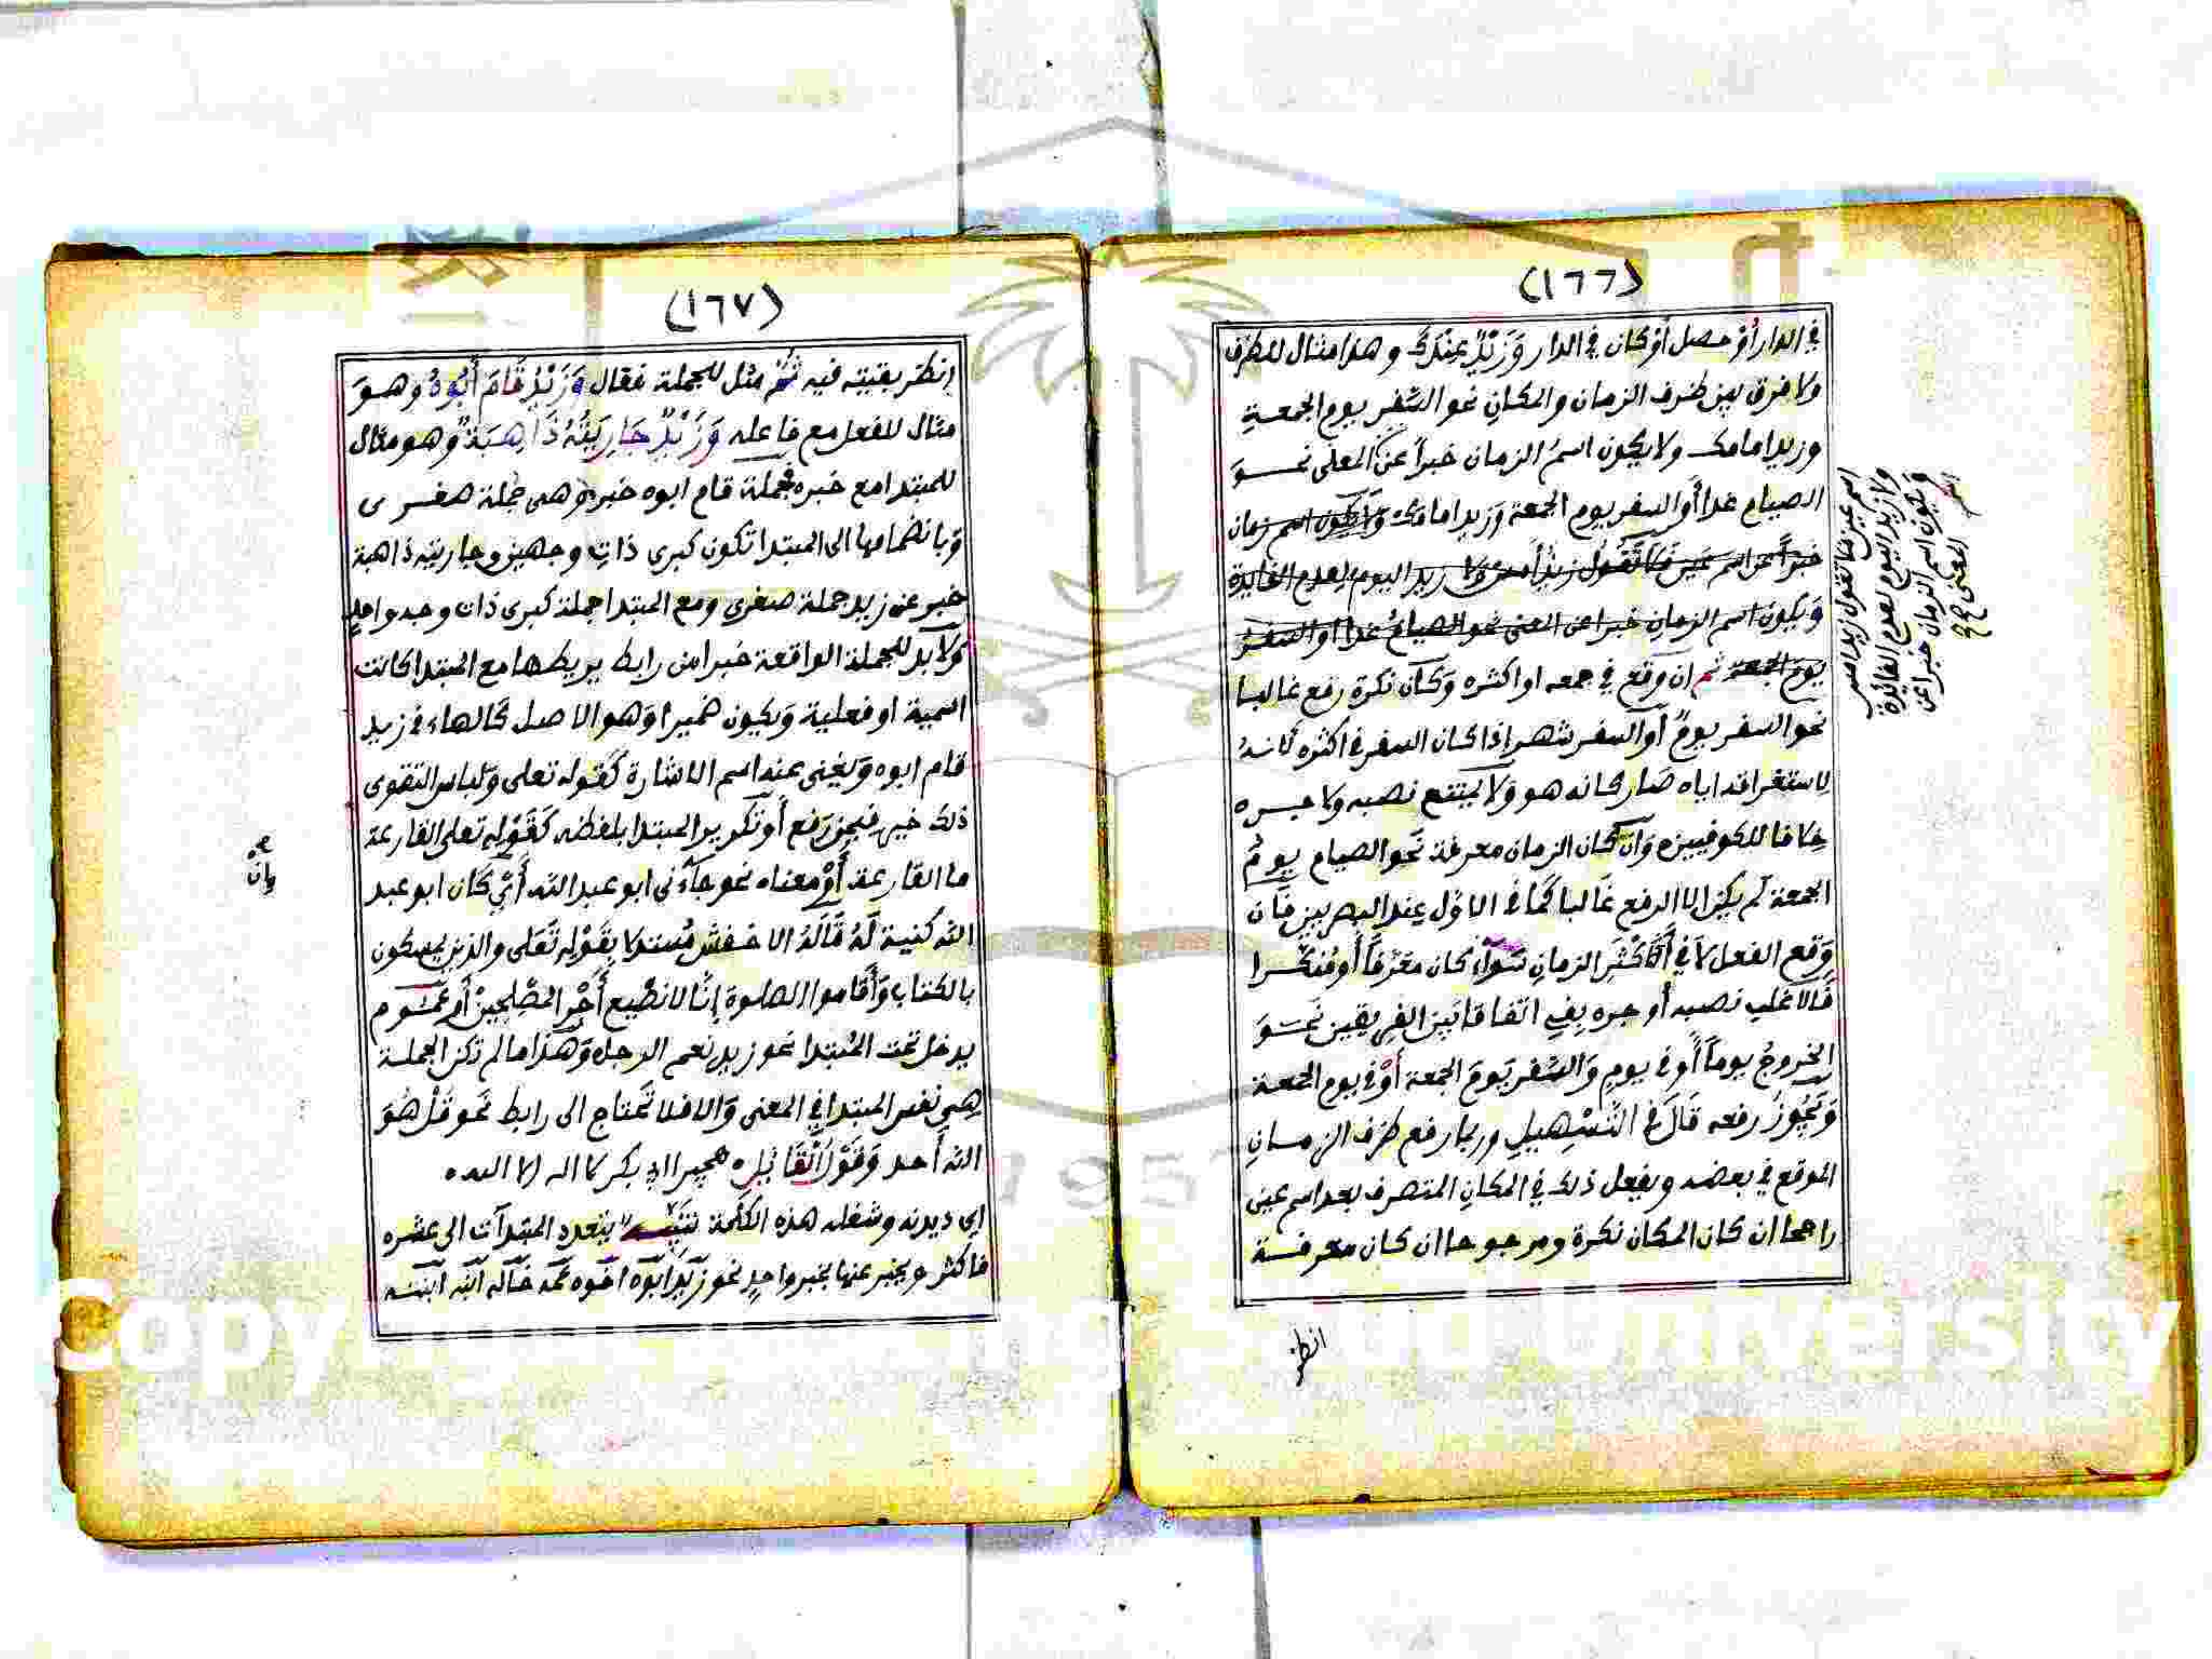 (١٦٦)
في الدار أوْ حصل أوْ كان في الدار وَزَيْدٌ عِنْدَكَ وهذا مثال للظرف
ولا فرق بين ظرف الزمان والمكانِ نحو السَّفر يوم الجمعةِ
وزيد امامك ولا يكون اسمُ الزمان خبراً عن المعنى نحوَ
الصيام غدا أو السفر يوم الجمعة وَزيد امامك وَلَا يَكون اسم زمان
خبراً عن اسم عين فَلا تَقُول زيدٌ أمس وَلا زيد اليوم لعدم الفايدة
وَيكون اسم الزمانِ خبرا عن المعنى نحو الصيامُ غدا أو السفرُ
يومَ الجمعة ثم ان وقع في جمعه او اكثره وَكان نكرة رفع غالبا
نحو السفر يومٌ أو السفر شهر إذا كان السفر في اكثره لأنهُ
لاستغراقه اياه صَار كانه هو وَلا يمتنع نصبه ولا جره
خلافا للكوفيين وَان كان الزمان معرفة نَحو الصيام يومُ
الجمعة لم يكن الا الرفع غَالبا كَمَا في الاوّل عند البصريين فَان
وَقع الفعل لاَ في أَكْثَرِ الزمانِ سَوَآء كان معَرفاً أو مُنكّرا
فَالاغلب نصبه أو جره بِفي اتفاقا بَين الفريقين نَحوَ
الخروجُ يوماً أو في يوم وَالسَّفر يَومَ الجمعة أوْ في يوم الجمعة
وَيَجُوزُ رفعه قَالَ في التَّسْهِيلِ وربما رفع ظرف الزمانِ
الموقع في بعضه ويفعل ذلك في المكانِ المتصرف بعد اسم عين
راجحا ان كان المكان نكرة ومرجوحا ان كان معرفة
انظر
اسم عين فلا تقول زيد امس
ولا زيد اليوم لعدم الفائدة
ويكون اسم الزمان خبرا عن
المعنى صح
(١٦٧)
إنظر بقيته فيه ثُمَّ مثل للجملة فقال وَزَيْدٌ قَامَ أَبُوهُ وهوَ
مثال للفعل مع فاعله وَزَيْدٌ جَارِيَتُهُ ذَاهِبَةٌ وهو مثال
للمبتدا مع خبره فجملة قام ابوه خبر وهى جملة صغرى
وَبانضمامها الى المبتدا تكون كبرى ذات وجهين وجاريته ذاهبة
خبر عن زيد جملة صغرى ومع المبتدا جملة كبرى ذات وجه واحدٍ
وَلابد للجملة الواقعة خبرا من رابط يربطها مع المبتدا كانت
اسمية او فعلية وَيكون ضميرا وَهو الاصل كالهاء في زيد
قام ابوه وَيغنى عنه اسم الاشارة كَقوله تعلى وَلباس التقوى
ذلك خير فيمن رَفع أو تكرير المبتدا بلفظه كَقَوْلِهِ تعلى القارعة
ما القارعة أَوْ معناه نحو جآءنى ابو عبد الله أَيْ كان ابو عبد
الله كنية لَهُ قَالَهُ الاخفش مُستدلا بقَوْلِهِ تَعَلى والذين يمسكون
بالكتاب وَأَقاموا الصلوة إنَّا لا نضيع أَجْر المصْلِحِين أو عُمُوم
يدخل تحت المُبتدا نحو زيد نعم الرجل وَهَذا ما لم تكن الجملة
هِي نفس المبتدا في المعنى وَالا فلا تَحتاج الى رابط نَحو قُلْ هُوَ
الله أَحد وَقَوْلُ القَائِل هجيرا ابي بكر لا اله الا الله
اى ديدنه وشغله هذه الكلمة تنبيه يتعدد المبتدآت الى عشره
فاكثر ويخبر عنها بخبر واحد نحو زَيد ابوه اخوه عمه خَاله ابنه ابنته
وان